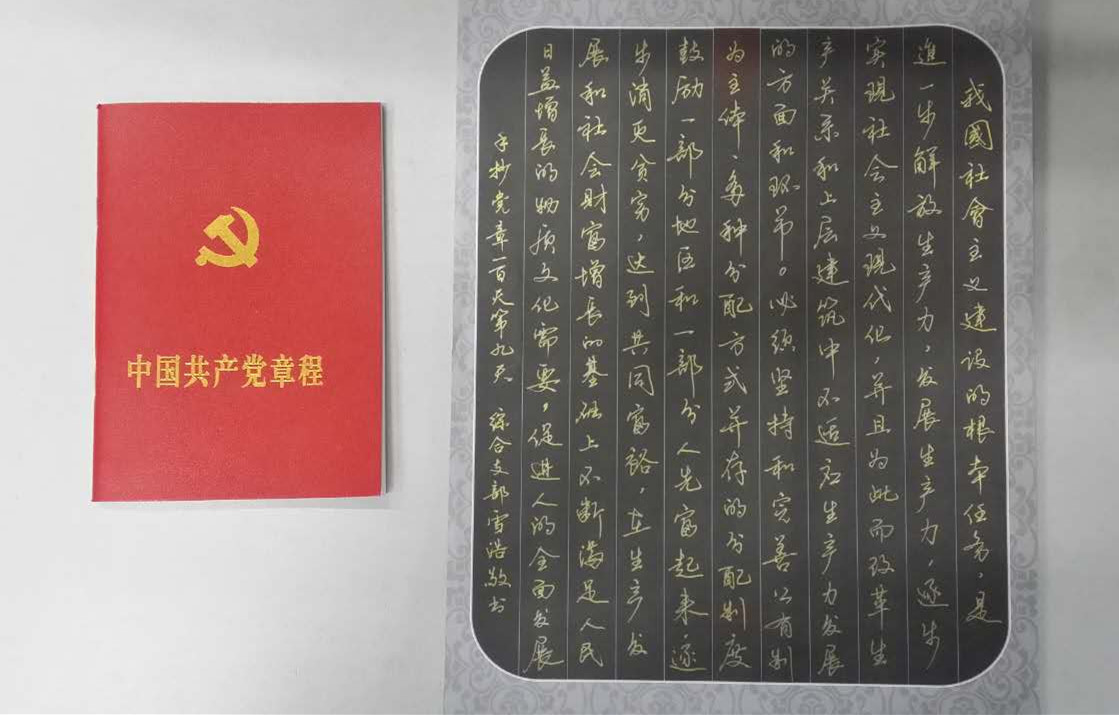 中国共产党章程
我國社會主义建设的根本任务，是
進一步解放生产力，发展生产力，逐步
实现社会主义现代化 并且为此而改革生
产关系和上层建筑中不适应生产力发展
的方面和环节。必须坚持和完善公有制
为主体、多种分配方式并存的分配制度
鼓励一部分地区和一部分人先富起来逐
步消灭贫穷，达到共同富裕，在生产发
展和社会财富增长的基础上不断满足人民
日益增长的物质文化需要，促进人的全面发展
手抄党章一百天第九天 综合支部雪浩敬书